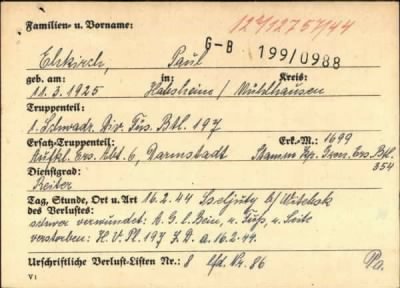 Familien- u. Vorname:
12712757/44
G-B 199/0988
Ehkirch, Paul
geb. am: in: Kreis:
11.3.1925 Habsheim / Mühlhausen
Truppenteil:
1. Schwadr. Div. Füs. Btl. 197
Ersatz-Truppenteil: Erk.-M.: 1699
Aufkl. Ers. Abt. 6, Darmstadt Stamm Kp. Gren. Ers. Btl.
354
Dienstgrad:
Reiter
Tag, Stunde, Ort u. Art 16.2.44 b/Witebsk
des Verlustes:
schwer verwundet: A.G. l. Bein, u. Fuß, u. Seite
verstorben: H.V.Pl. 197 J.D. a. 16.2.44.
Urschriftliche Verlust-Listen Nr.: 8 lfd. Nr. 86
V 1